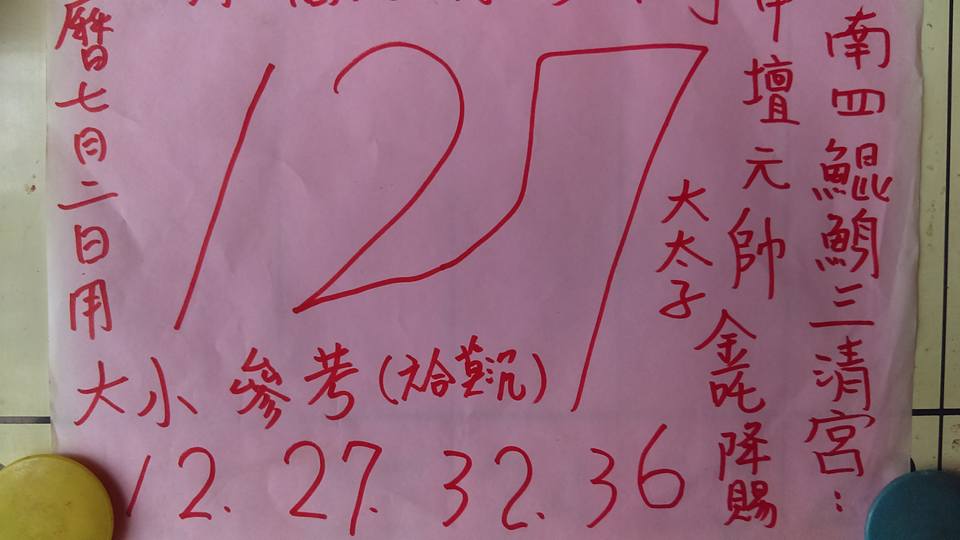 南四鯤鯓三清宮：
中壇元帥金吒降賜
大太子
127
大小參考
12. 27. 32. 36
曆七月二日用